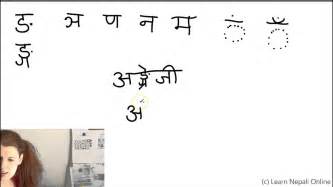 ङ ञ ण न म ◌ं ◌ँ
ङ्ग
अङ्ग्रेजी
अ
(c) Learn Nepali Online